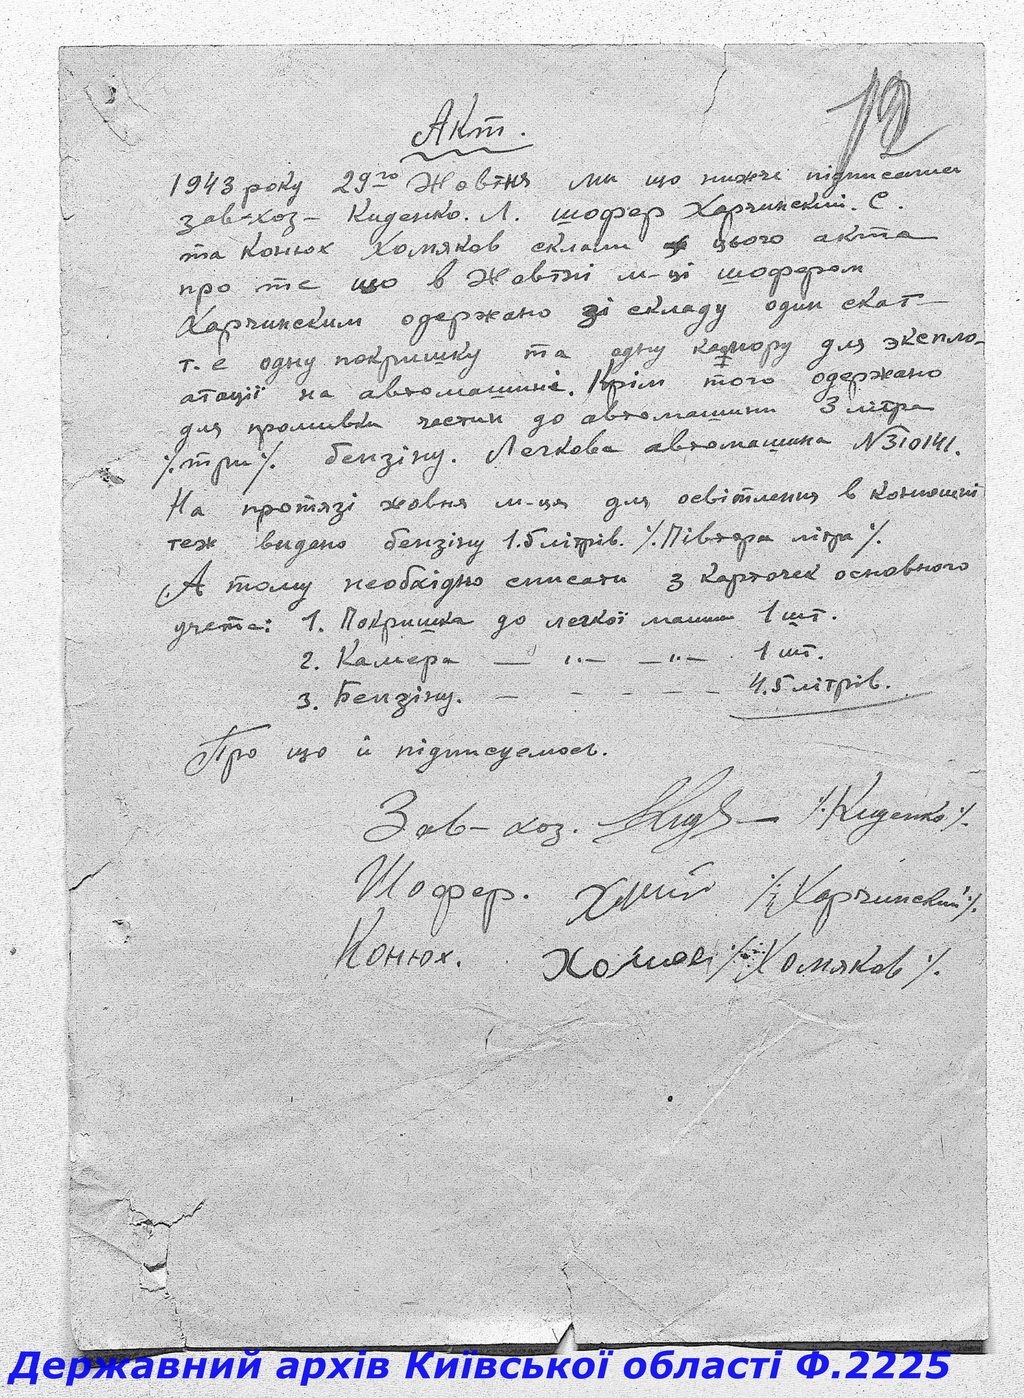 12
Акт.
1943 року 29го Жовтня ми що нижчі підписались
зав-хоз- Киденко. Л. шофер Харчинский. С.
та Конюх Хомяков склали цього акта
про те що в Жовтні м-ці шофером
Харчинским одержано зі складу один скат-
т.є одну покришку та одну камору для экспло-
атації на автомашині. Крім того одержано
для промивки частин до автомашини 3 літра
%.три%. бензіну. Легкова автомашина №310141.
На протязі жовня м-ця для освітлення в конюшні
теж видано бензіну 1.5 літрів. %.Півтора літра%.
А тому необхідно списати з карточек основного
учета: 1. Покришка до легкої машини 1 шт.
2. Камера — „— —„— 1 шт.
3. Бензіну. — - - - — 4.5 літрів.
Про що й підписуємось.
Зав-хоз. %.Киденко%.
Шофер. %.Харчинский%.
Конюх. %.Хомяков%.
Державний архів Київської області Ф.2225